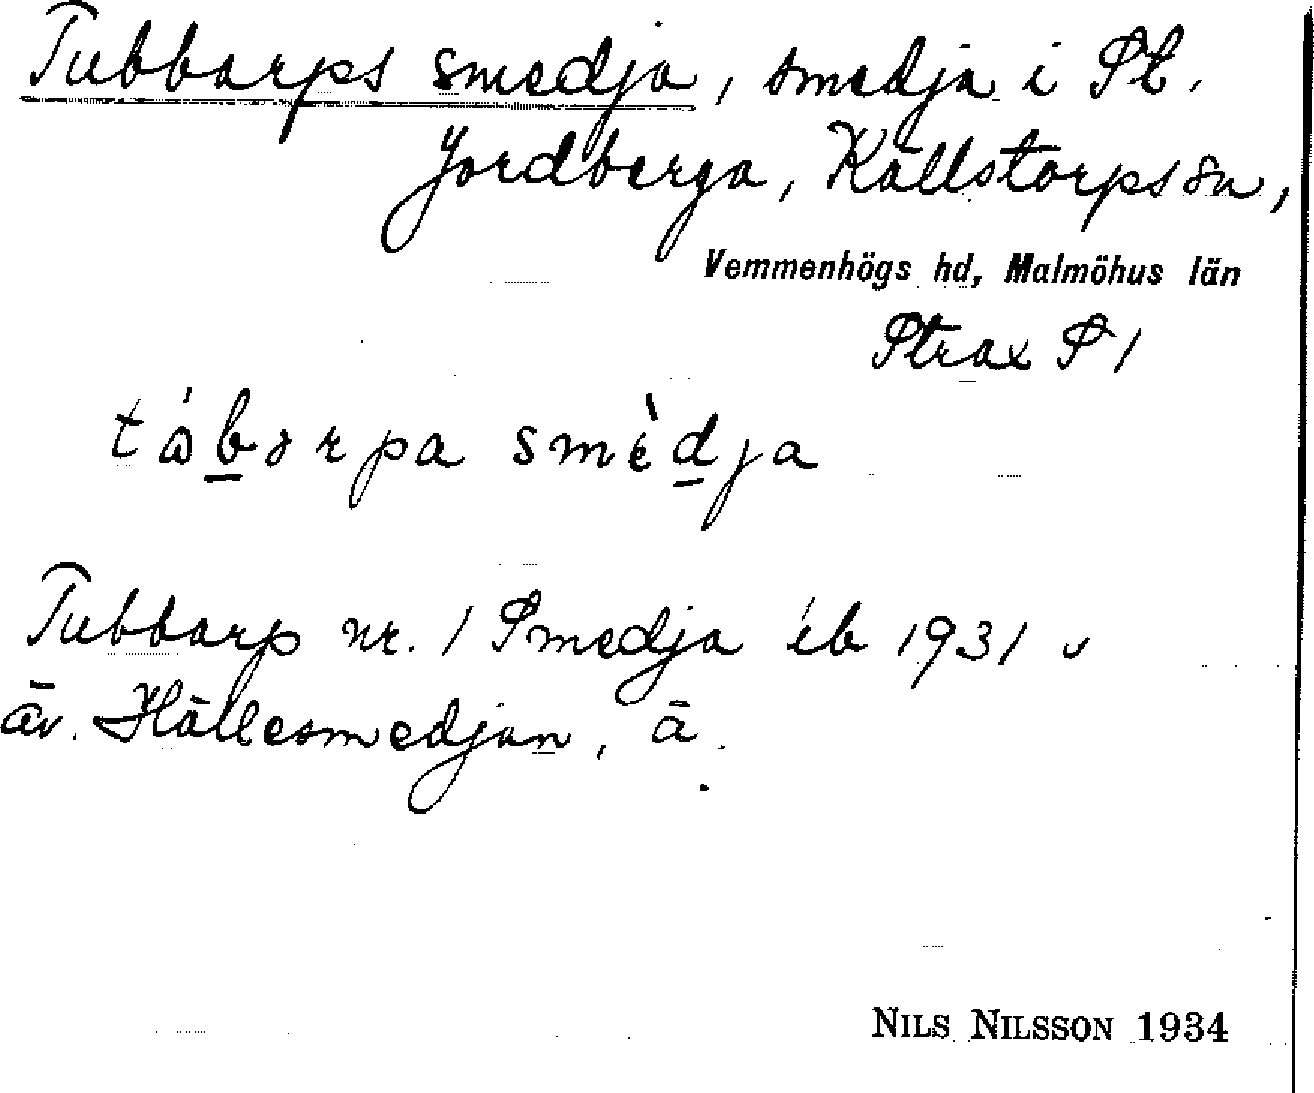 Tubbarps smedja, smedja i St.
Jordberga, Källstorps sn,
Vemmenhögs hd, Malmöhus län
Strax S 1
tåbarpa smèdja
Tubbarp nr. 1 Smedja eb 1931 v
äv. Hällesmedjan, ä.
NILS NILSSON 1934